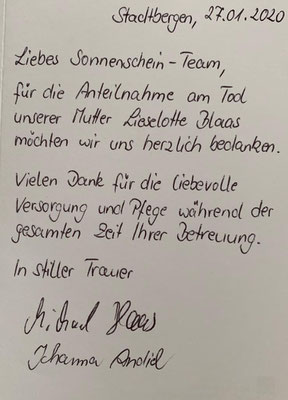 Stadtbergen, 27.01.2020
Liebes Sonnenschein-Team,
für die Anteilnahme am Tod
unserer Mutter Lieselotte Blaas
möchten wir uns herzlich bedanken.
Vielen Dank für die liebevolle
Versorgung und Pflege während der
gesamten Zeit Ihrer Betreuung.
In stiller Trauer
Michael Blaas
Johanna